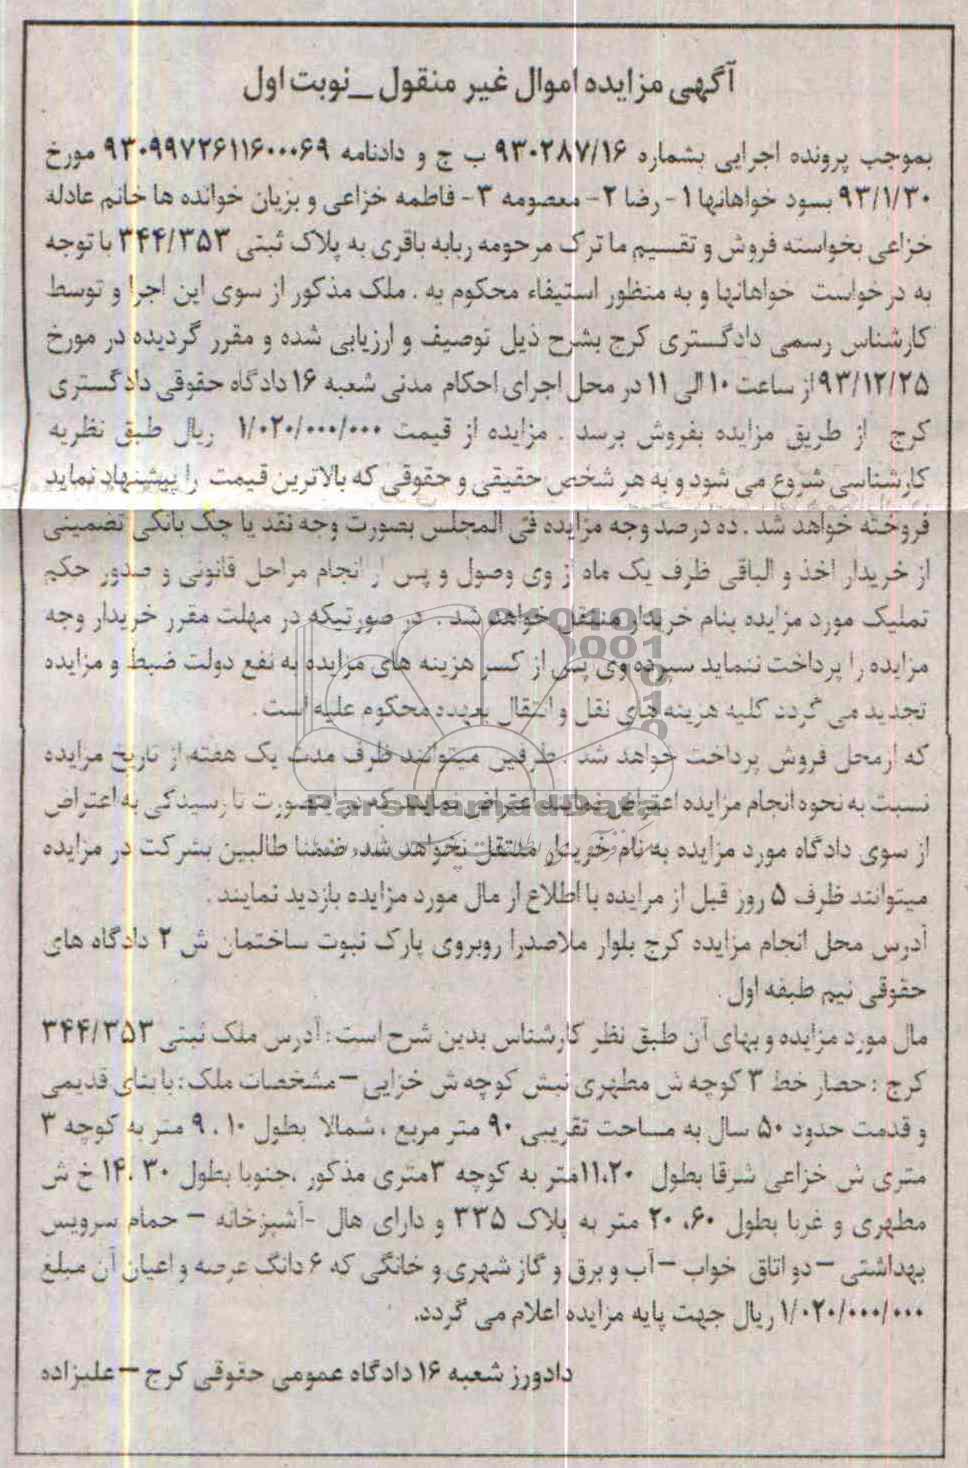 آگهی مزایده اموال غیر منقول _ نوبت اول
بموجب پرونده اجرایی بشماره ۹۳۰۲۸۷/۱۶ ب ج و دادنامه ۹۳۰۹۹۷۲۶۱۱۶۰۰۰۶۹ مورخ
۹۳/۱/۳۰ بسود خواهانها ۱- رضا ۲- معصومه ۳- فاطمه خزاعی و بزیان خوانده ها خانم عادله
خزاعی بخواسته فروش و تقسیم ماترک مرحومه ربابه باقری به پلاک ثبتی ۳۴۴/۳۵۳ با توجه
به درخواست خواهانها و به منظور استیفاء محکوم به . ملک مذکور از سوی این اجرا و توسط
کارشناس رسمی دادگستری کرج بشرح ذیل توصیف و ارزیابی شده و مقرر گردیده در مورخ
۹۳/۱۲/۲۵ از ساعت ۱۰ الی ۱۱ در محل اجرای احکام مدنی شعبه ۱۶ دادگاه حقوقی دادگستری
کرج از طریق مزایده بفروش برسد . مزایده از قیمت ۱/۰۲۰/۰۰۰/۰۰۰ ریال طبق نظریه
کارشناسی شروع می شود و به هر شخص حقیقی و حقوقی که بالاترین قیمت را پیشنهاد نماید
فروخته خواهد شد . ده درصد وجه مزایده فی المجلس بصورت وجه نقد یا چک بانکی تضمینی
از خریدار اخذ و الباقی ظرف یک ماه از وی وصول و پس از انجام مراحل قانونی و صدور حکم
تملیک مورد مزایده بنام خریدار منتقل خواهد شد . در صورتیکه در مهلت مقرر خریدار وجه
مزایده را پرداخت ننماید سپرده وی پس از کسر هزینه های مزایده به نفع دولت ضبط و مزایده
تجدید می گردد کلیه هزینه های نقل و انتقال بعهده محکوم علیه است .
که ازمحل فروش پرداخت خواهد شد . طرفین میتوانند ظرف مدت یک هفته از تاریخ مزایده
نسبت به نحوه انجام مزایده اعتراض نمایند اعتراض نمایند که در اینصورت تا رسیدگی به اعتراض
از سوی دادگاه مورد مزایده به نام خریدار منتقل نخواهد شد. ضمنا طالبین بشرکت در مزایده
میتوانند ظرف ۵ روز قبل از مرایده با اطلاع از مال مورد مزایده بازدید نمایند .
آدرس محل انجام مزایده کرج بلوار ملاصدرا روبروی پارک نبوت ساختمان ش ۲ دادگاه های
حقوقی نیم طبقه اول .
مال مورد مزایده و بهای آن طبق نظر کارشناس بدین شرح است : آدرس ملک ثبتی ۳۴۴/۳۵۳
کرج : حصار خط ۳ کوچه ش مطهری نبش کوچه ش خزایی – مشخصات ملک : با بنای قدیمی
و قدمت حدود ۵۰ سال به مساحت تقریبی ۹۰ متر مربع ، شمالا بطول ۹،۱۰ متر به کوچه ۳
متری ش خزاعی شرقا بطول ۱۱،۲۰ متر به کوچه ۳متری مذکور ،جنوبا بطول ۱۴،۳۰ خ ش
مطهری و غربا بطول ۲۰،۶۰ متر به پلاک ۳۳۵ و دارای هال -آشپزخانه – حمام سرویس
بهداشتی – دو اتاق خواب – آب و برق و گاز شهری و خانگی که ۶ دانگ عرصه و اعیان آن مبلغ
۱/۰۲۰/۰۰۰/۰۰۰ ریال جهت پایه مزایده اعلام می گردد.
دادورز شعبه ۱۶ دادگاه عمومی حقوقی کرج – علیزاده
ParsNamadData